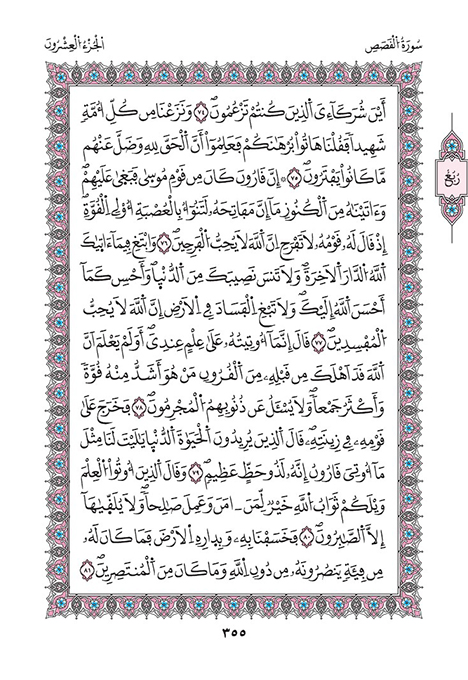 سُورَةُ الْقَصَصِ
الْجُزْءُ الْعِشْرُونَ
أَيْنَ شُرَكَآءِيَ اَلذِينَ كُنتُمْ تَزْعُمُونَۖ ٧٤ وَنَزَعْنَا مِن كُلِّ أُمَّةٖ
شَهِيداٗ فَقُلْنَا هَاتُواْ بُرْهَٰنَكُمْ فَعَلِمُوٓاْ أَنَّ اَلْحَقَّ لِلهِ وَضَلَّ عَنْهُم
مَّا كَانُواْ يَفْتَرُونَۖ ٧٥ إِنَّ قَٰرُونَ كَانَ مِن قَوْمِ مُوسَىٰ فَبَغَىٰ عَلَيْهِمْۖ
وَءَاتَيْنَٰهُ مِنَ اَلْكُنُوزِ مَآ إِنَّ مَفَاتِحَهُۥ لَتَنُوٓأُ بِالْعُصْبَةِ أُوْلِے اِلْقُوَّةِۖ
إِذْ قَالَ لَهُۥ قَوْمُهُۥ لَا تَفْرَحِ اِنَّ اَللَّهَ لَا يُحِبُّ اُلْفَرِحِينَۖ ٧٦ وَابْتَغِ فِيمَآ ءَاتَىٰكَ
اَللَّهُ اُلدَّارَ اَلَاخِرَةَۖ وَلَا تَنسَ نَصِيبَكَ مِنَ اَلدُّنْي۪اۖ وَأَحْسِن كَمَآ
أَحْسَنَ اَللَّهُ إِلَيْكَۖ وَلَا تَبْغِ اِلْفَسَادَ فِے اِلَارْضِ إِنَّ اَللَّهَ لَا يُحِبُّ
اُلْمُفْسِدِينَۖ ٧٧ قَالَ إِنَّمَآ أُوتِيتُهُۥ عَلَىٰ عِلْمٍ عِندِيَۖ أَوَلَمْ يَعْلَمَ اَنَّ
اَللَّهَ قَدَ اَهْلَكَ مِن قَبْلِهِۦ مِنَ اَلْقُرُونِ مَنْ هُوَ أَشَدُّ مِنْهُ قُوَّةٗ
وَأَكْثَرُ جَمْعاٗۖ وَلَا يُسْـَٔلُ عَن ذُنُوبِهِمُ اُلْمُجْرِمُونَۖ ٧٨ فَخَرَجَ عَلَىٰ
قَوْمِهِۦ فِے زِينَتِهِۦۖ قَالَ اَلذِينَ يُرِيدُونَ اَلْحَيَوٰةَ اَلدُّنْي۪ا يَٰلَيْتَ لَنَا مِثْلَ
مَآ أُوتِيَ قَٰرُونُ إِنَّهُۥ لَذُو حَظٍّ عَظِيمٖۖ ٧٩ وَقَالَ اَلذِينَ أُوتُواْ اُلْعِلْمَ
وَيْلَكُمْ ثَوَابُ اُللَّهِ خَيْرٞ لِّمَنَ اٰمَنَ وَعَمِلَ صَٰلِحاٗۖ وَلَا يُلَقَّىٰهَآ
إِلَّا اَلصَّٰبِرُونَۖ ٨٠ فَخَسَفْنَا بِهِۦ وَبِدَارِهِ اِلَارْضَ فَمَا كَانَ لَهُۥ
مِن فِئَةٖ يَنصُرُونَهُۥ مِن دُونِ اِللَّهِ وَمَا كَانَ مِنَ اَلْمُنتَصِرِينَۖ ٨١
رُبُعٌ
٣٥٥